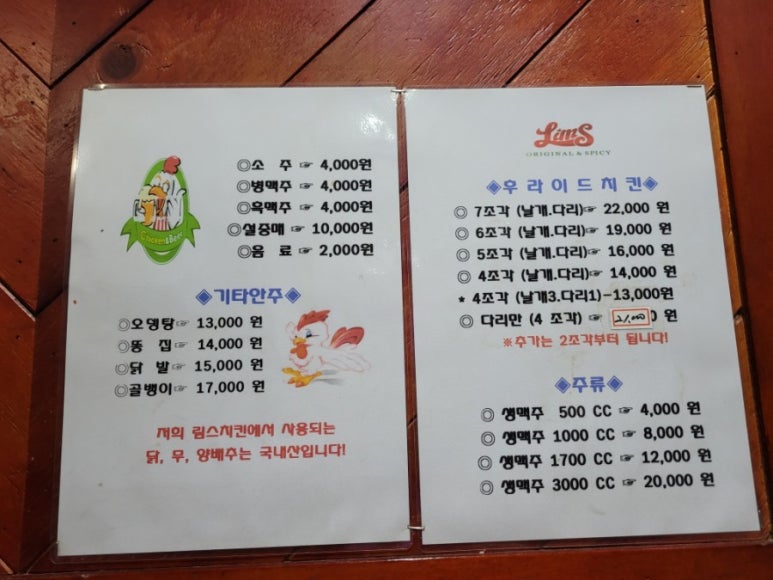 Chicken&Beer
◎소 주 ☞ 4,000원
◎병맥주 ☞ 4,000원
◎흑맥주 ☞ 4,000원
◎설중매 ☞ 10,000원
◎음 료 ☞ 2,000원
◈기타안주◈
◎오뎅탕☞ 13,000 원
◎똥 집☞ 14,000 원
◎닭 발☞ 15,000 원
◎골뱅이☞ 17,000 원
저희 림스치킨에서 사용되는
닭, 무, 양배추는 국내산입니다!
Lim's
ORIGINAL & SPICY
◈후 라 이 드 치 킨◈
◎ 7조각 (날개.다리)☞ 22,000 원
◎ 6조각 (날개.다리)☞ 19,000 원
◎ 5조각 (날개.다리)☞ 16,000 원
◎ 4조각 (날개.다리)☞ 14,000 원
★ 4조각 (날개3.다리1)-13,000원
◎ 다리만 (4 조각) ☞ 21,000 원
※추가는 2조각부터 됩니다!
◈주류◈
◎ 생맥주 500 CC ☞ 4,000 원
◎ 생맥주 1000 CC ☞ 8,000 원
◎ 생맥주 1700 CC ☞ 12,000 원
◎ 생맥주 3000 CC ☞ 20,000 원